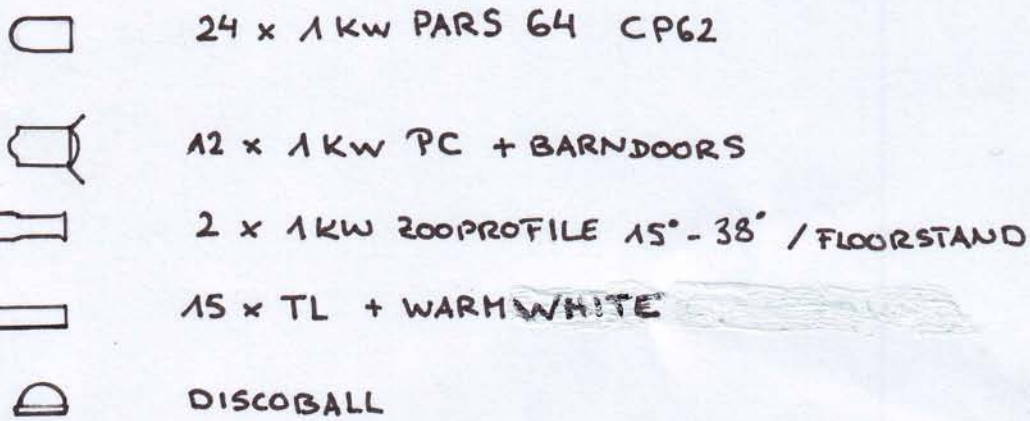 24 x 1 KW PARS 64 CP62
12 x 1 KW PC + BARNDOORS
2 x 1 KW ZOOPROFILE 15° - 38° / FLOORSTAND
15 x TL + WARMWHITE
DISCOBALL